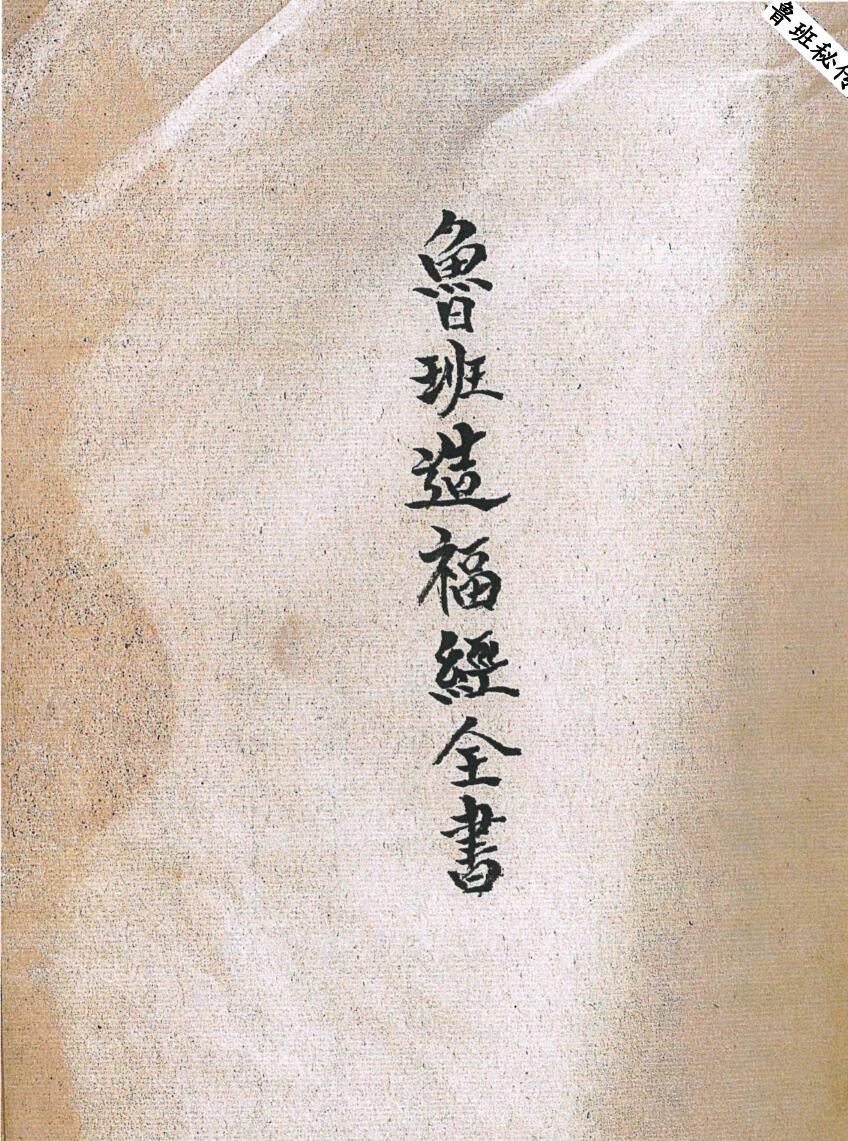 魯班造福經全書
鲁班秘传